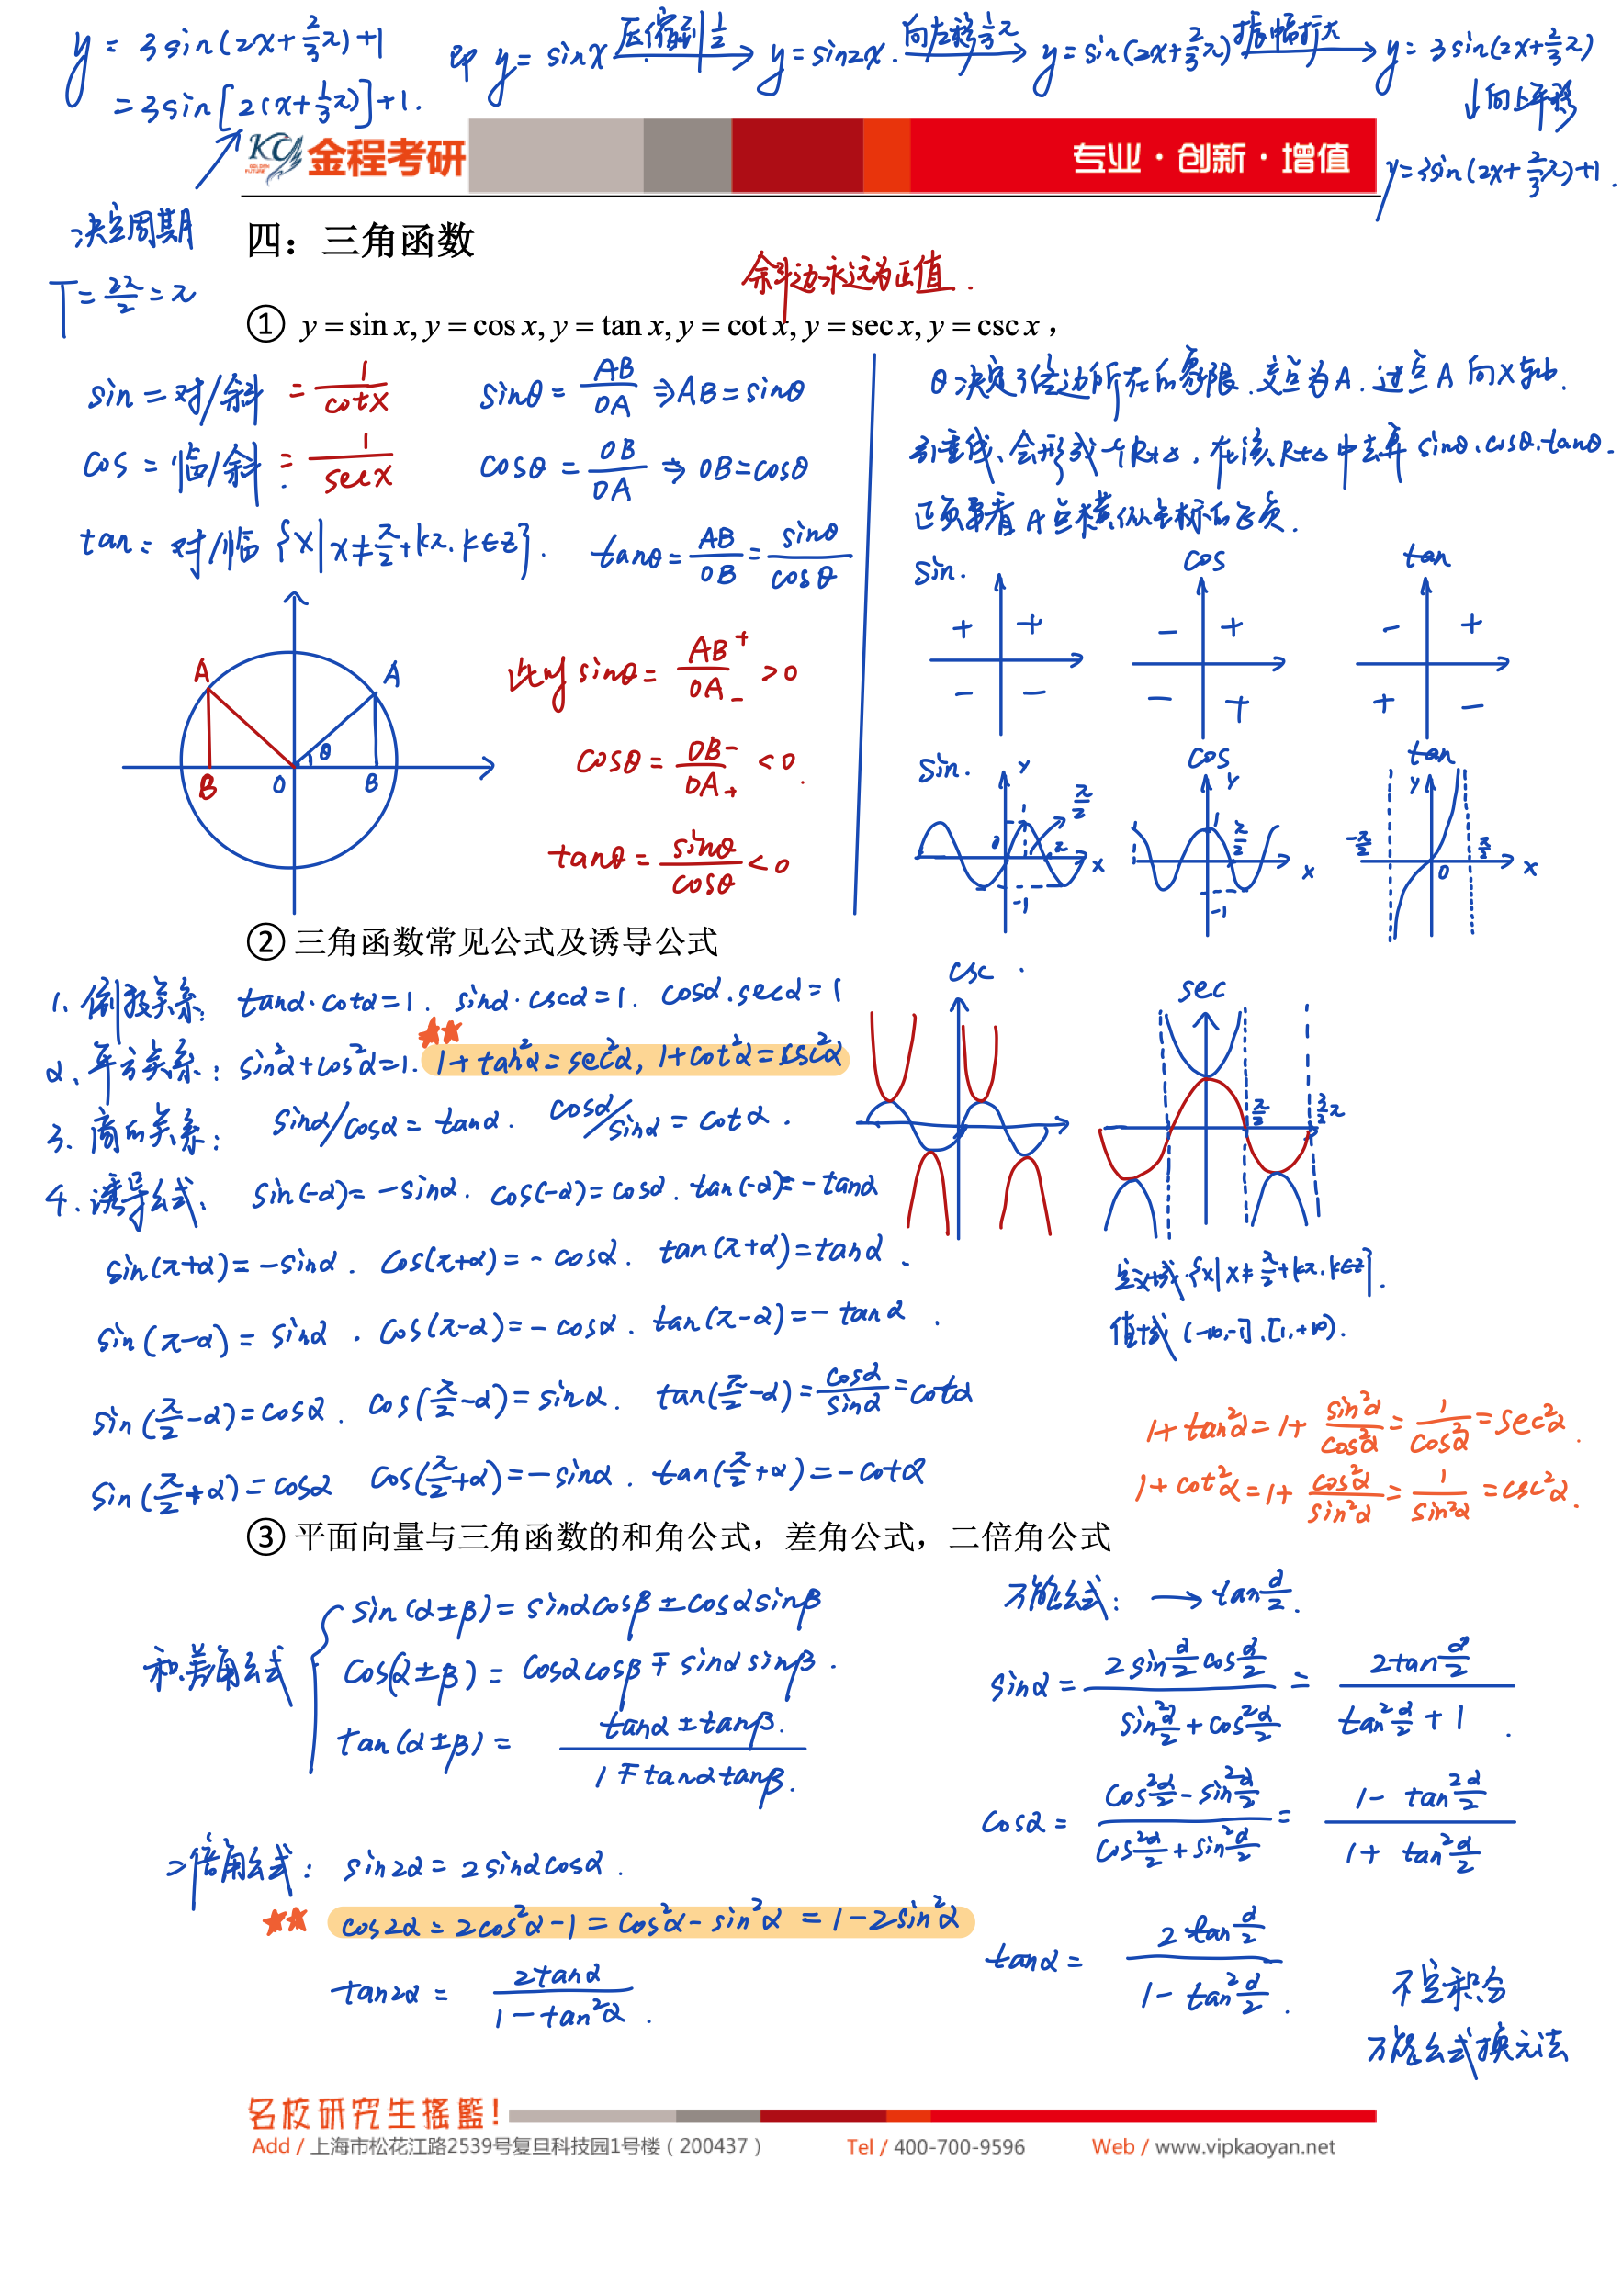 y = 3sin(2x+2/3π)+1
= 3sin[2(x+1/3π)]+1.
即 y=sinx 压缩到1/2→ y=sin2x. 向左移1/3π→ y=sin(2x+2/3π) 振幅扩大→ y=3sin(2x+2/3π)
↓向上平移
y=3sin(2x+2/3π)+1.
决定周期
T=2π/2=π
KC GOLDEN FUTURE 金程考研
专业·创新·增值
四：三角函数
斜边永远为正值.
① y = sin x, y = cos x, y = tan x, y = cot x, y = sec x, y = csc x，
sin = 对/斜 = 1/cotx
cos = 临/斜 = 1/secx
tan = 对/临 {x|x≠π/2+kπ.k∈z}.
sinθ= AB/OA ⇒AB=sinθ
cosθ = OB/OA ⇒ OB=cosθ
tanθ= AB/OB = sinθ/cosθ
θ决定了终边所在的象限.交点为A.过点A向X轴.
引垂线、会形成一个Rt△.在该Rt△中去算 sinθ.cosθ.tanθ.
正负要看A点横纵坐标的正负.
A A θ B O B
此时 sinθ= AB+/OA- >0
cosθ= OB-/OA+ <0.
tanθ= sinθ/cosθ <0
sin. cos tan
+ + - + - +
- - - + + -
sin. cos tan
y π/2 0 π x -1
y 1 π/2 x -1
y -π/2 0 π/2 x
② 三角函数常见公式及诱导公式
1.倒数关系: tanα·cotα=1. sinα·cscα=1. cosα.secα=1
2、平方关系: sin²α+cos²α=1. 1+tan²α=sec²α, 1+cot²α=csc²α
3.商的关系: sinα/cosα=tanα. cosα/sinα=cotα.
4.诱导公式: sin(-α)=-sinα. cos(-α)=cosα. tan(-α)=-tanα
sin(π+α)=-sinα. cos(π+α)=-cosα. tan(π+α)=tanα.
sin(π-α)=sinα. cos(π-α)=-cosα. tan(π-α)=-tanα.
sin(π/2-α)=cosα. cos(π/2-α)=sinα. tan(π/2-α)=cosα/sinα=cotα
sin(π/2+α)=cosα cos(π/2+α)=-sinα. tan(π/2+α)=-cotα
csc.
sec
π/2 3/2π
定义域:{x|x≠π/2+kπ.k∈z}.
值域(-∞,-1].[1,+∞).
1+tan²α=1+sin²α/cos²α=1/cos²α=sec²α.
1+cot²α=1+cos²α/sin²α=1/sin²α=csc²α.
③ 平面向量与三角函数的和角公式，差角公式，二倍角公式
和.差角公式
sin(α±β)=sinαcosβ±cosαsinβ
cos(α±β)=cosαcosβ∓sinαsinβ.
tan(α±β)= tanα±tanβ./1∓tanαtanβ.
二倍角公式: sin2α=2sinαcosα.
cos2α=2cos²α-1=cos²α-sin²α=1-2sin²α
tan2α= 2tanα/1-tan²α.
万能公式: → tanα/2.
sinα= 2sinα/2cosα/2 / sin²α/2+cos²α/2 = 2tanα/2 / tan²α/2+1.
cosα= cos²α/2-sin²α/2 / cos²α/2+sin²α/2 = 1-tan²α/2 / 1+tan²α/2
tanα= 2tanα/2 / 1-tan²α/2.
不定积分
万能公式换元法
名校研究生摇篮!
Add / 上海市松花江路2539号复旦科技园1号楼（200437） Tel / 400-700-9596 Web / www.vipkaoyan.net